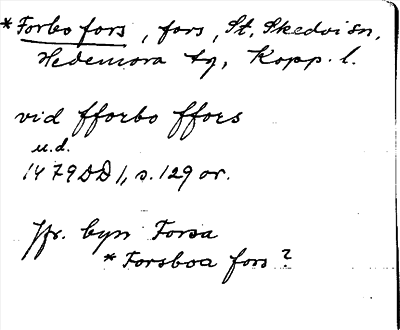 *Forbo fors, fors, St. Skedvi sn,
Hedemora tg, Kopp. l.
vid fforbo ffors
u.d.
1479 DD 1, s. 129 or.
Jfr. byn Forsa
*Forsboa fors?